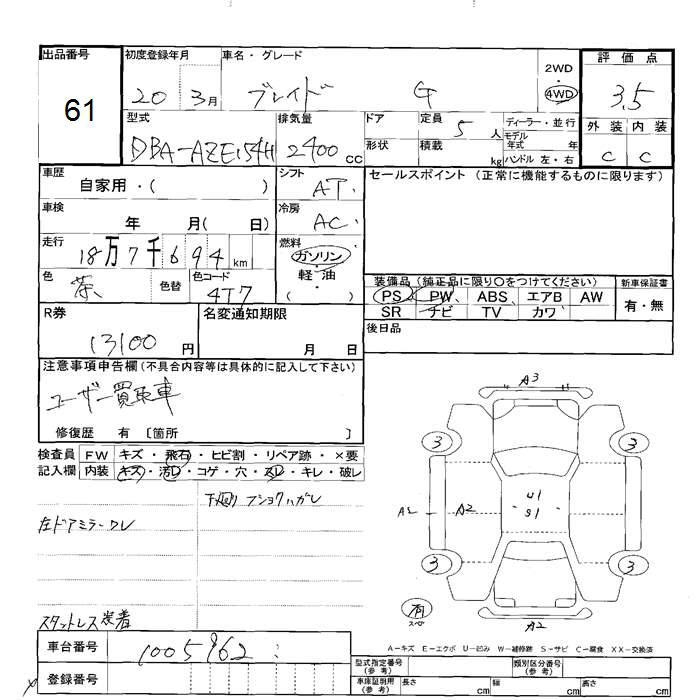 出品番号 61
初度登録年月 20 3月
車名・グレード ブレイド G
2WD ・ 4WD
評価点 3.5
外装 内装
C C
型式 DBA-AZE154H
排気量 2400 cc
ドア 定員 5人
形状 積載 kg
ディーラー・並行
モデル年式 年
ハンドル 左・右
車歴 自家用・( )
シフト AT
セールスポイント (正常に機能するものに限ります)
車検 年 月( 日)
冷房 AC
走行 18万7千694km
燃料 ガソリン・軽・油 ( )
色 茶 色替 色コード 4T7
装備品 (純正品に限り○をつけてください) 新車保証書
PS PW ABS エアB AW 有・無
SR ナビ TV カワ
R券 13100円
名変通知期限 月 日
後日品
注意事項申告欄(不具合内容等は具体的に記入して下さい)
ユーザー買取車
修復歴 有 〔箇所 〕
検査員記入欄
FW キズ・飛石・ヒビ割・リペア跡・×要
内装 キズ・汚レ・コゲ・穴・スレ・キレ・破レ
下廻り フショクハガレ
左ドアミラーワレ
スタットレス装着
A3
3 3
A2 A2 U1 S1
3 3
有 スペア
A2
A-キズ E-エクボ U-凹み W-補修跡 S-サビ C-腐食 XX-交換済
車台番号 1005962
登録番号
型式指定番号(参考) 類別区分番号(参考)
車庫証明用(参考) 長さ cm 幅 cm 高さ cm